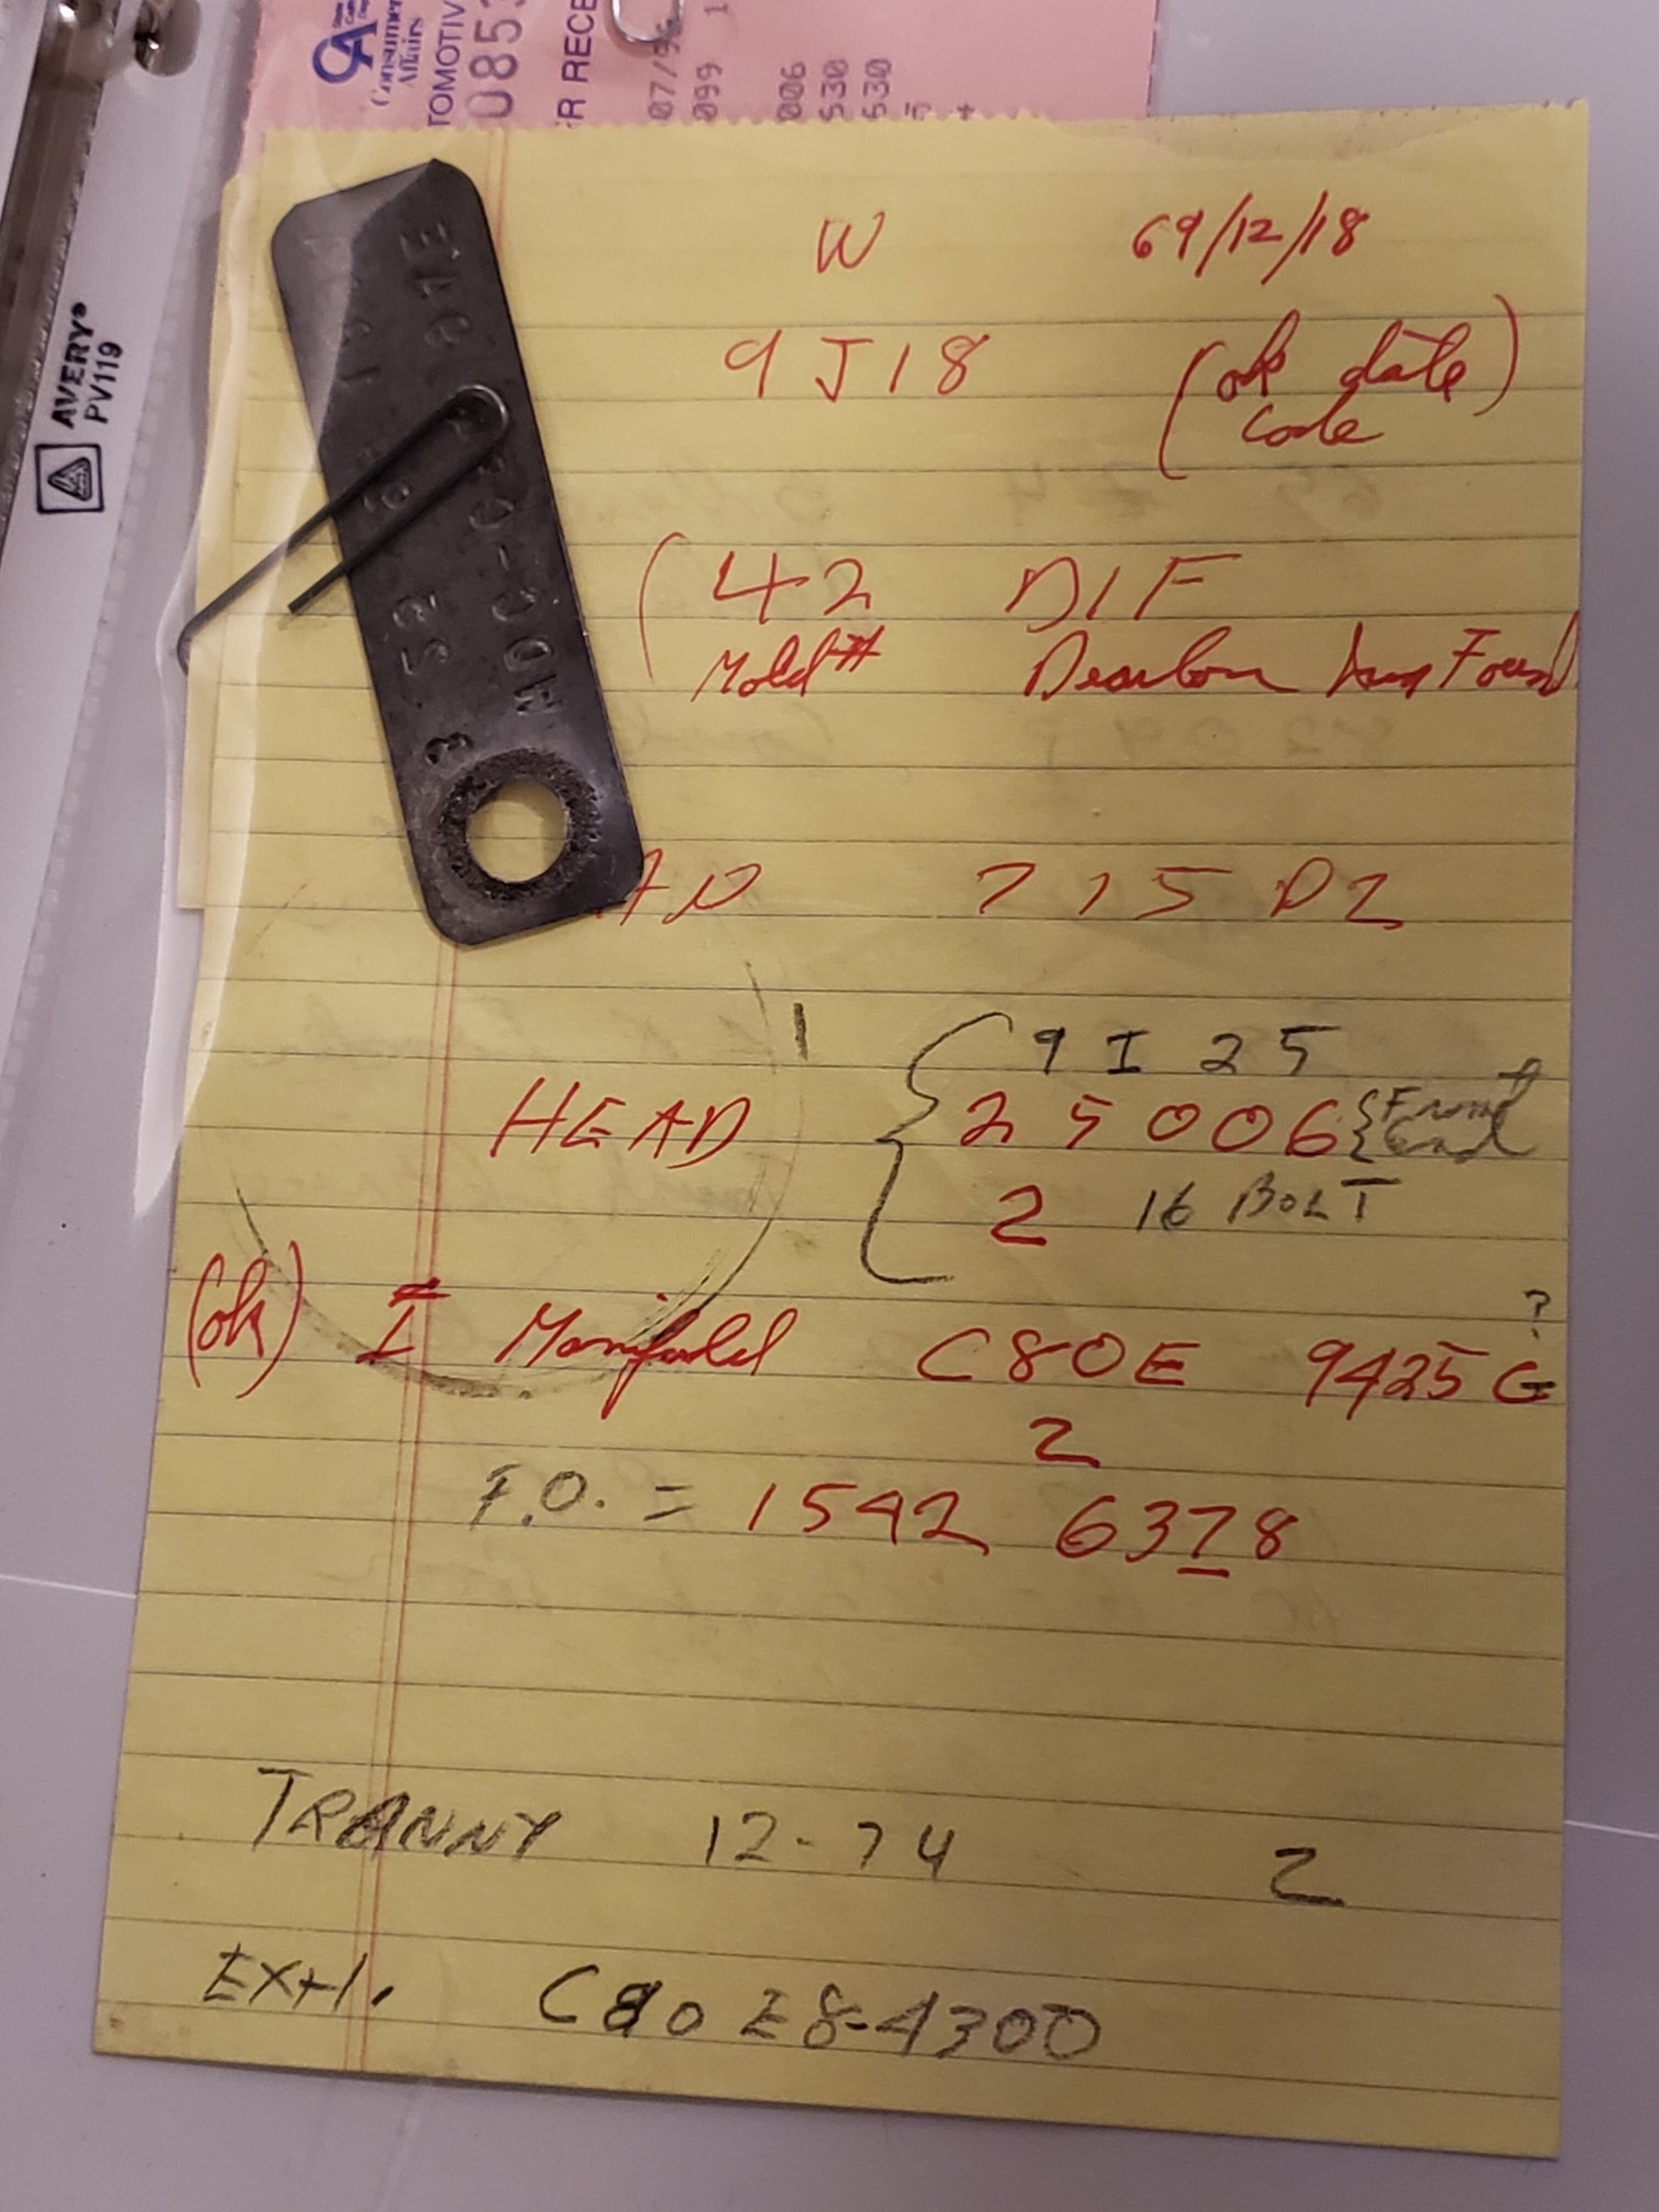 CA
Consumer
Affairs
TOMOTIV
085
R RECE
07/9
099 1
006
530
530
AVERY®
PV119
W 69/12/18
9J18 (ok date)
code
(42 DIF
Mold# Dearborn Iron Found
3 52
HDC-C
AD 715 D2
9 I 25
HEAD 25006 {Front
end
2 16 BOLT
?
(ok) I Manifold C8OE 9425 G
2
F.O. = 1542 6378
TRANNY 12-74 2
EXH. C8OE8-4300